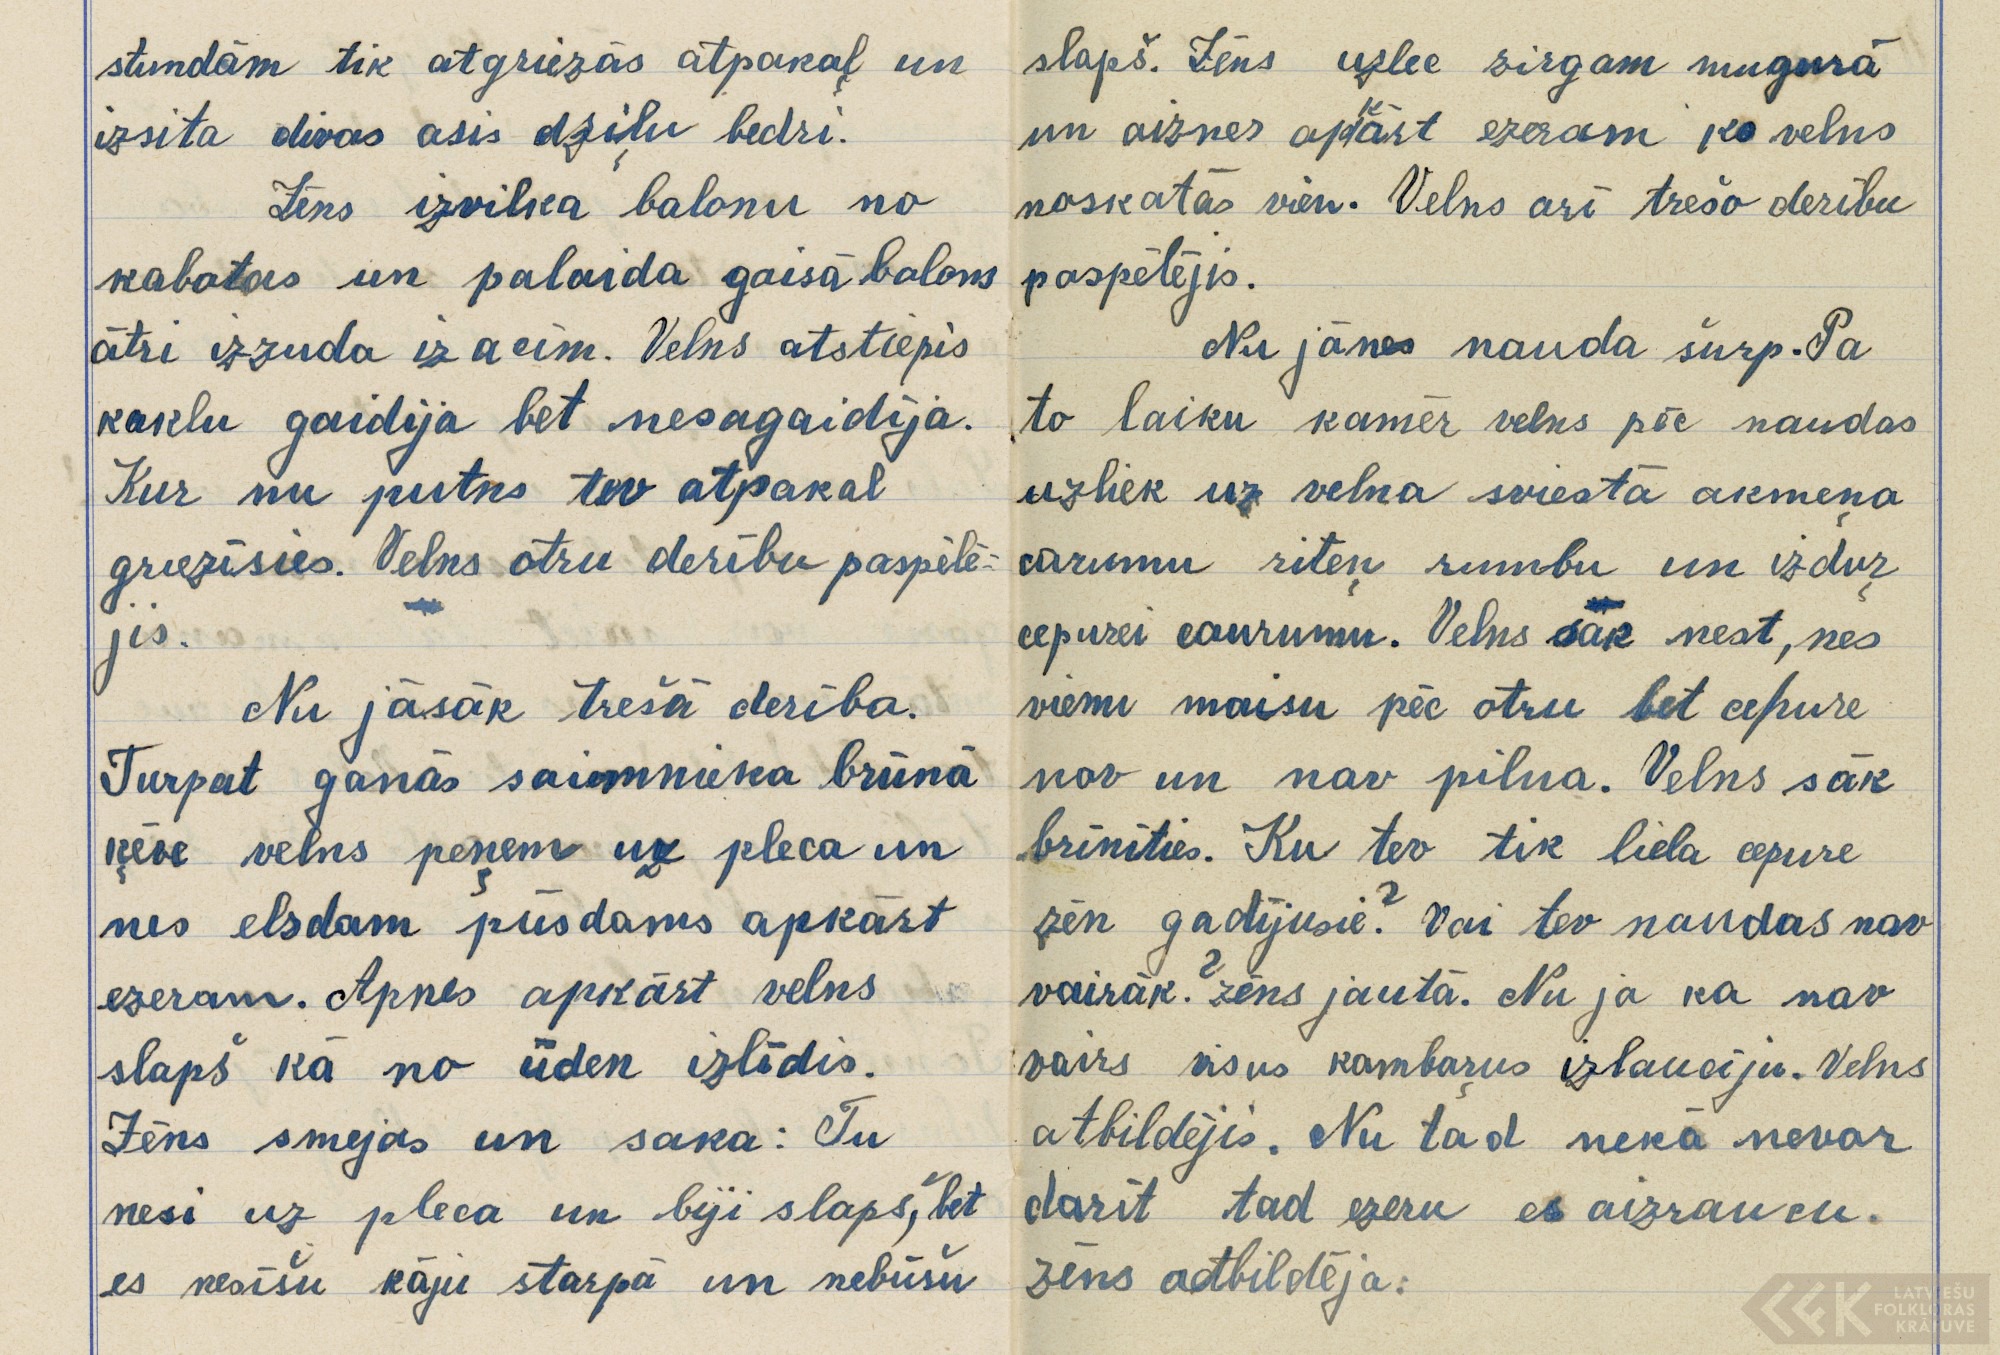 stundām tik atgriezās atpakaļ un
izsita divas asis dziļu bedri.
Zēns izvilka balonu no
kabatas un palaida gaisā balons
ātri izzuda iz acīm. Velns atstiepis
kaklu gaidīja bet nesagaidīja.
Kur nu putns tev atpakal
griezīsies. Velns otru derību paspēlē-
jis.
Nu jāsāk trešā derība.
Turpat ganās saimnieka brūnā
ķēve velns peņem uz pleca un
nes elsdam pūsdams apkārt
ezeram. Apnes apkārt velns
slapš kā no ūden izlīdis.
Zēns smejas un saka: Tu
nesi uz pleca un biji slapš, bet
es nesīšu kāju starpā un nebūšu
slapš. Zēns uzlec zirgam mugurā
un aiznes apkārt ezeram ko velns
noskatās vien. Velns arī trešo derību
paspēlējis.
Nu jānes nauda šurp. Pa
to laiku kamēr velns pēc naudas
uzliek uz velna sviestā akmeņa
carumu riteņ rumbu un izduŗ
cepurei caurumu. Velns sāk nest, nes
vienu maisu pēc otru bet cepure
nav un nav pilna. Velns sāk
brīnīties. Ku tev tik liela cepure
zēn gadījusie? Vai tev naudas nav
vairāk.? zēns jautā. Nu ja ka nav
vairs visus kambaŗus izlaucīju. Velns
atbildējis. Nu tad nekā nevar
darīt tad ezeru es aizraucu.
zēns adbildēja:
LATVIEŠU
FOLKLORAS
KRĀTUVE